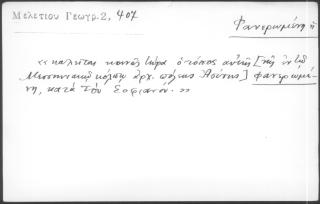 Μελετίου Γεωγρ. 2, 407
Φανερωμένη ἡ
«καλεῖται κοινῶς τώρα ὁ τόπος αὐτῆς [τῆς ἐν τῷ
Μεσσηνιακῷ κόλπῳ ἀρχ. πόλεως Ἀσίνης] φανερωμέ-
νη, κατὰ τὸν Σοφιανόν.»